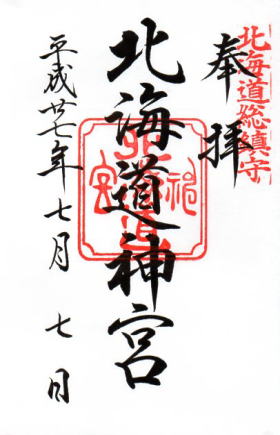 北海道総鎮守
奉拝
北海道神宮
平成廿七年七月七日